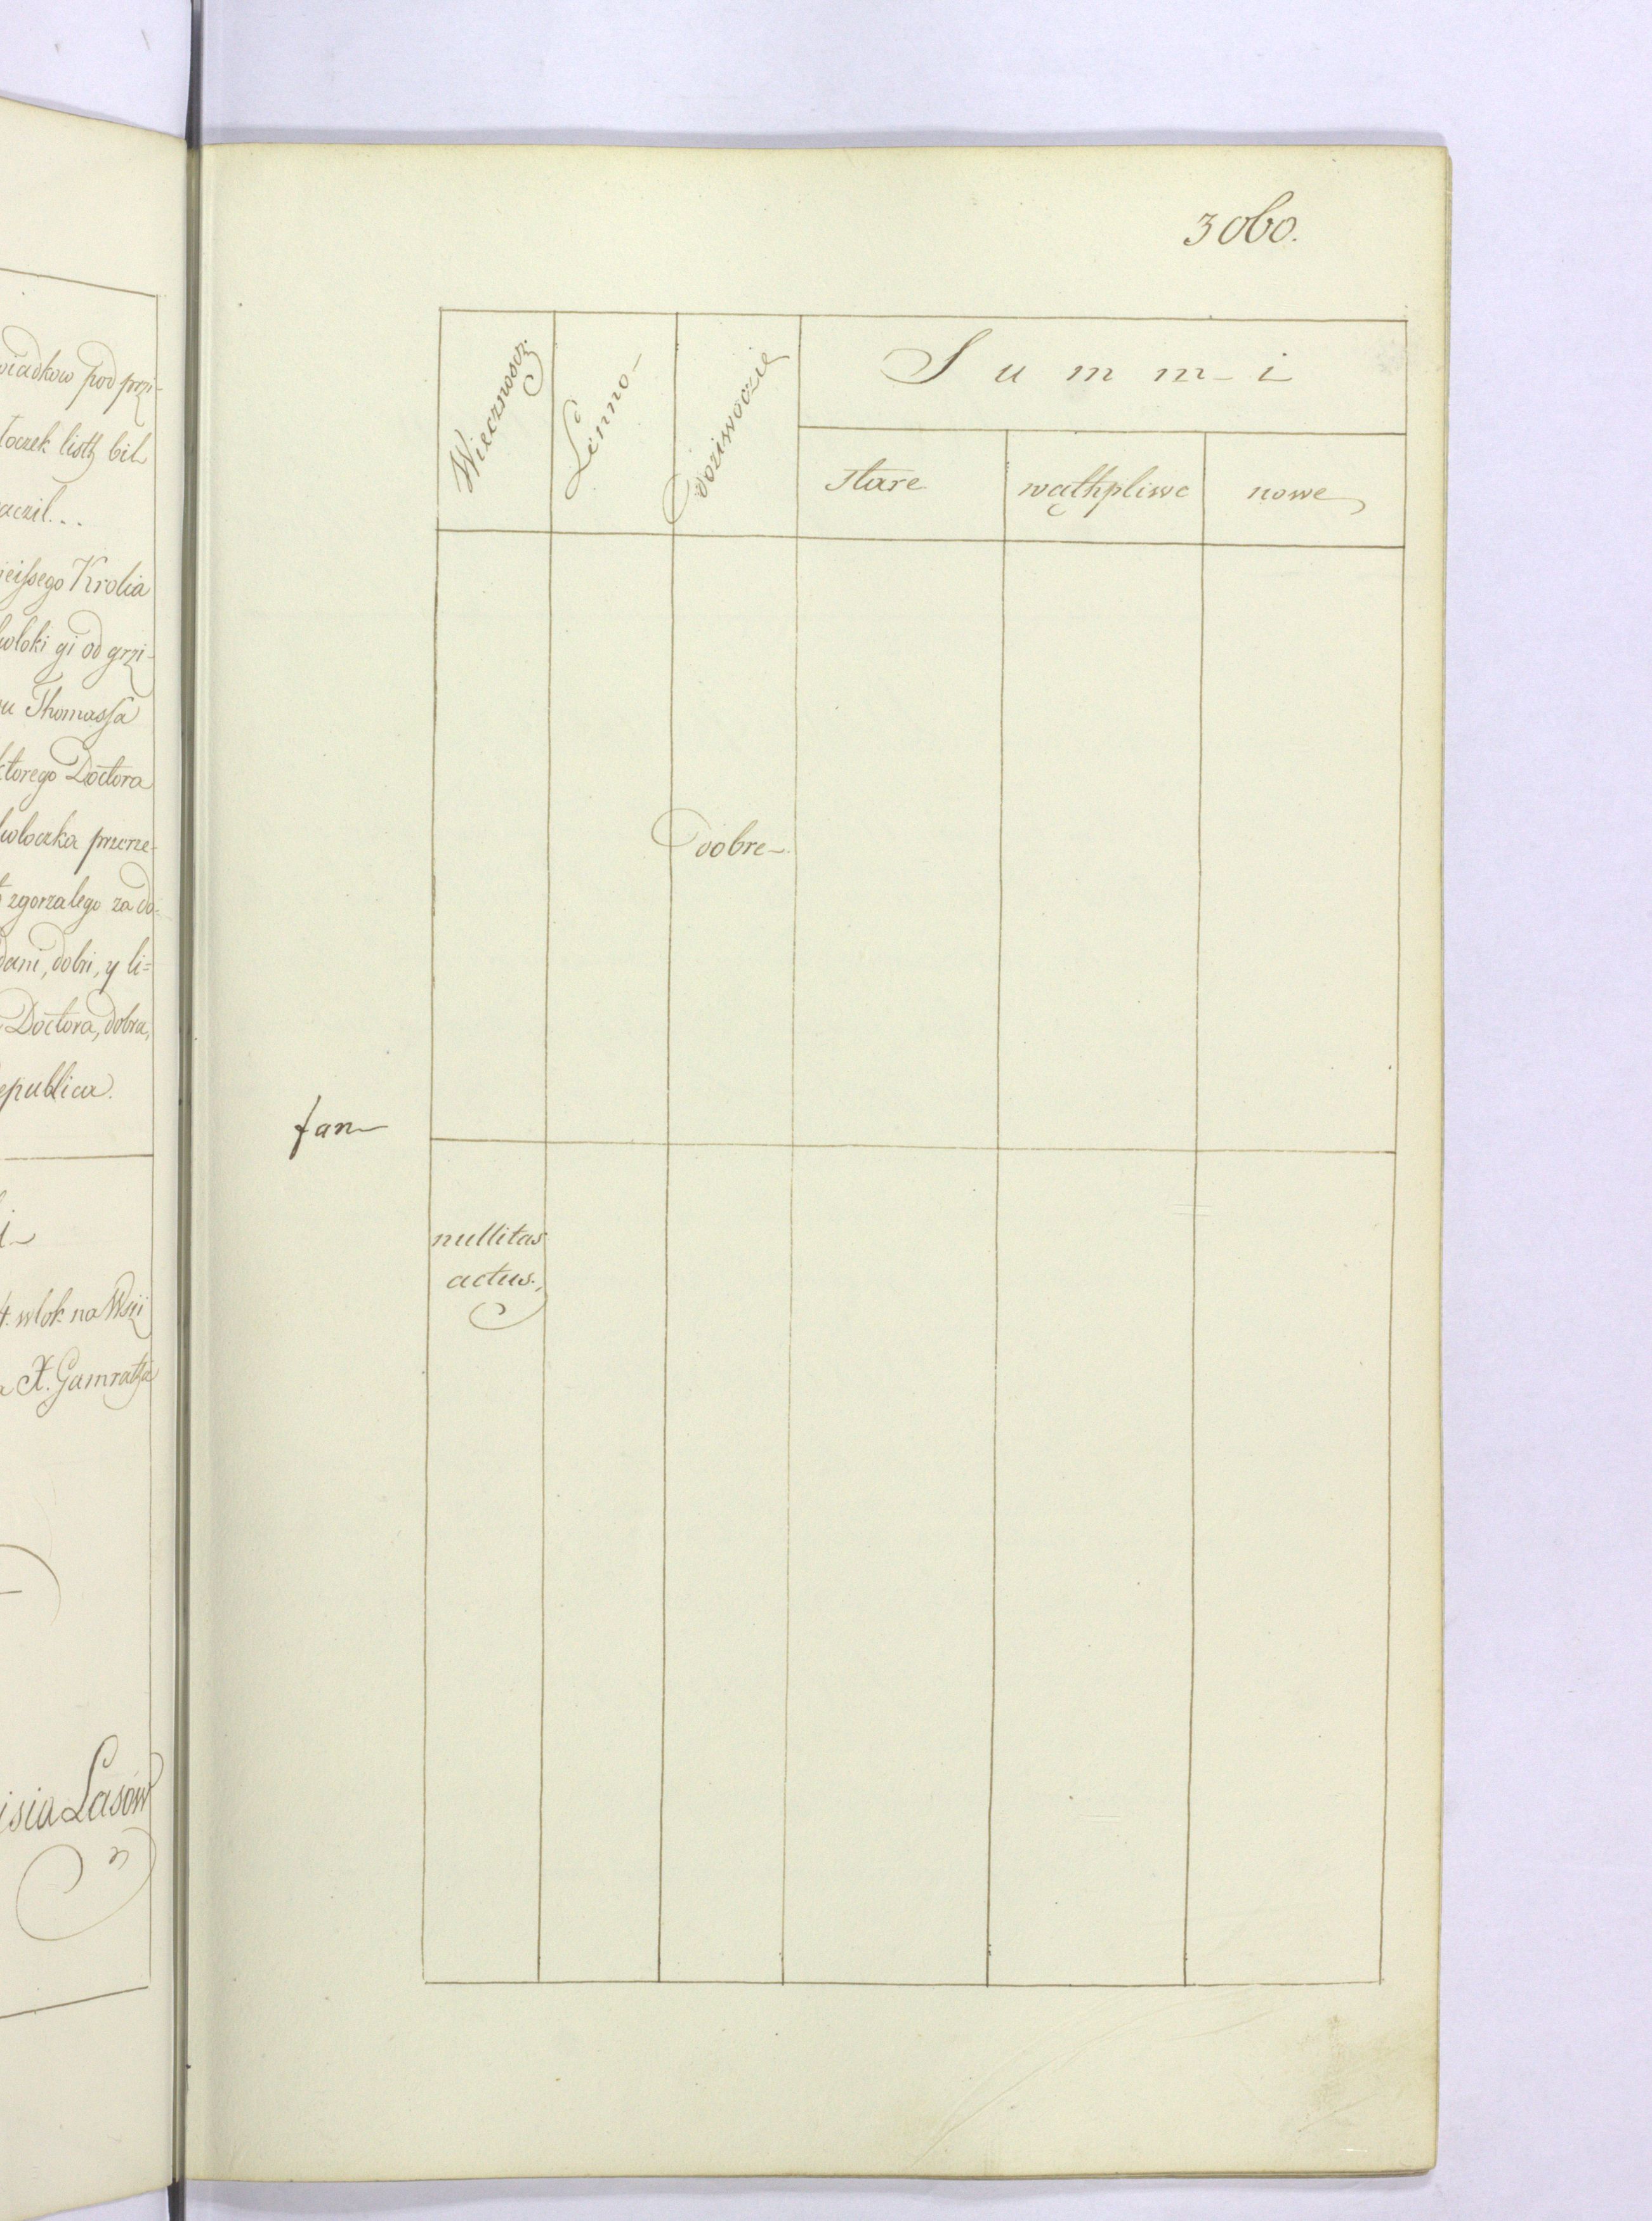 wiadkow pod przi-
loczek listh bil
aczil...
ieissego Krolia
wloki gi od grzi-
u Thomassa
ktorego Doctora
wloczka przerze-
zgorzalego za do-
dani, dobri, y li=
Doctora, dobra,
epublica.
4. wlok na Wsii
a X. Gamratha
isia Lasów
3060.
Wiecznoscz.
Lenno-
doziwoczie
Summ-i
stare
wąthpliwe
nowe
dobre-
fan
nullitas
actus.